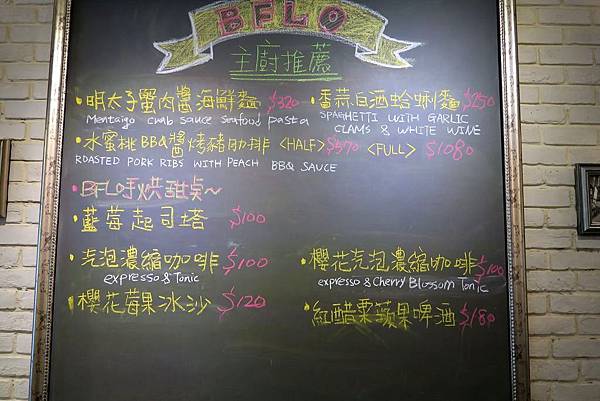 BFLO
主廚推薦
•明太子蟹肉醬海鮮麵 $320 •番蒜白酒蛤蜊麵 $250
Mentaigo crab sauce seafood pasta SPAGHETTI WITH GARLIC CLAMS & WHITE WINE
•水蜜桃BBQ醬烤豬肋排 <HALF> $570 <FULL> $1080
ROASTED PORK RIBS WITH PEACH BBQ SAUCE
•BFLO手烘甜點~
•藍莓起司塔 $100
•汽泡濃縮咖啡 $100 •櫻花汽泡濃縮咖啡 $100
expresso & Tonic expresso & Cherry Blossom Tonic
•櫻花莓果冰沙 $120 •紅醋栗蘋果啤酒 $180